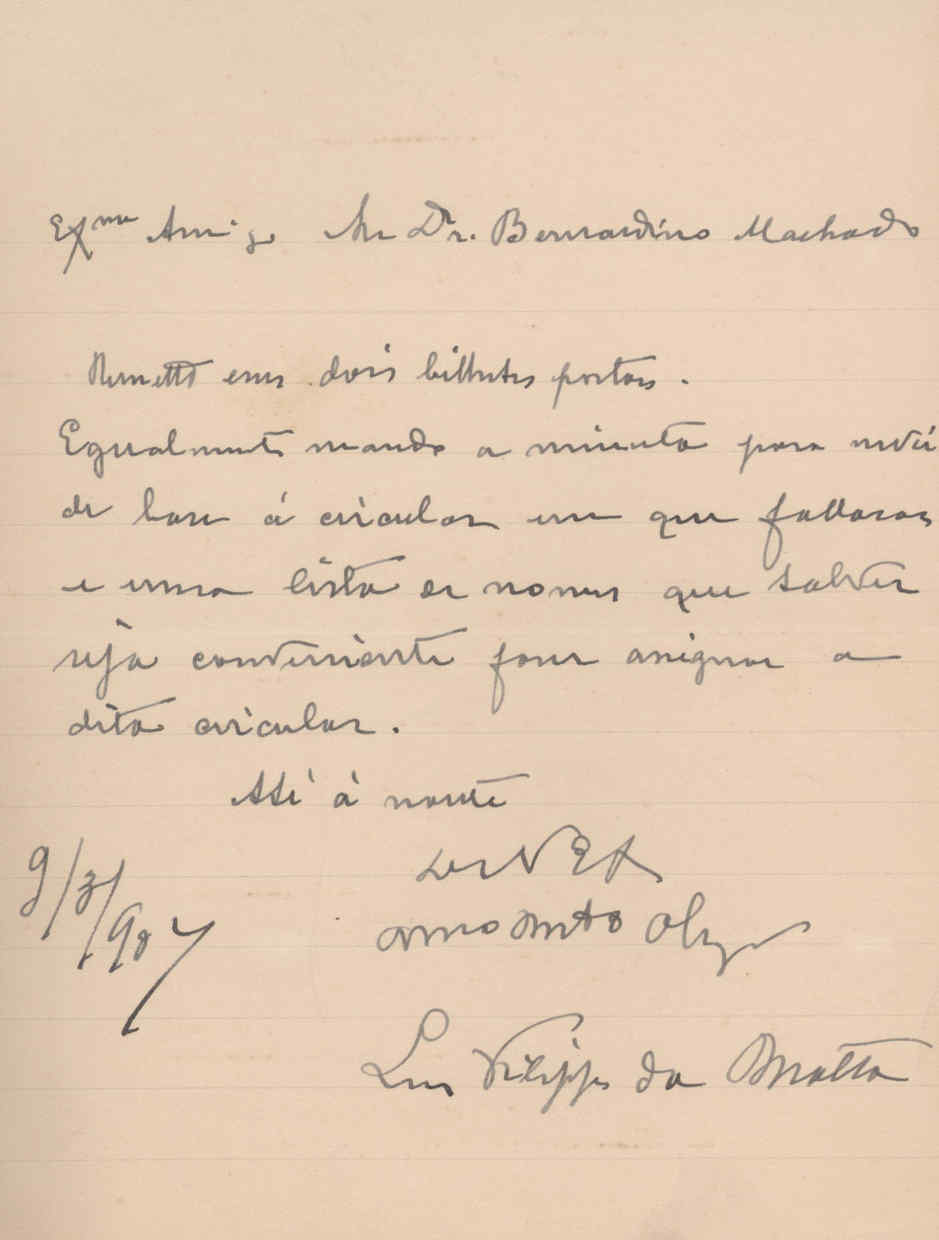 Exmo Amigo Snr Dr. Bernardino Machado
Remetto esses dois bilhetes postaes.
Egualmente mando a minuta para servir
de base á circular em que fallaram
e uma lista de nomes que talvez
seja conveniente fosse assignar a
dita circular.
Até á noute
De V. Ex
amo mto obrgo
9/3/907
Luis Filippe da Matta